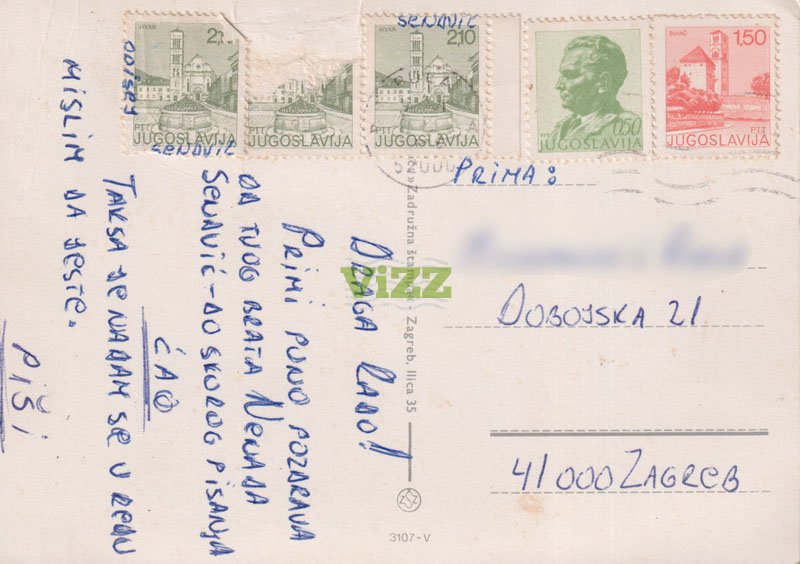 HVAR
PTT
JUGOSLAVIJA
SENAVIĆ
PTT
JUGOSLAVIJA
SENAVIĆ
HVAR
2,10
PTT
JUGOSLAVIJA
0,50
JUGOSLAVIJA
BIHAĆ
1,50
PTT
JUGOSLAVIJA
52000
DRAGA LADO!
PRIMI PUNO POZDRAVA
OD TVOG BRATA NENADA
SENAVIĆ-DO SKOROG PISANJA
ĆAO
TAKSA JE NADAM SE U REDU
MISLIM DA JESTE.
PIŠI
Zadružna štampa - Zagreb, Ilica 35
ViZZ
PRIMA:
DOBOJSKA 21
41000 ZAGREB
3107-V